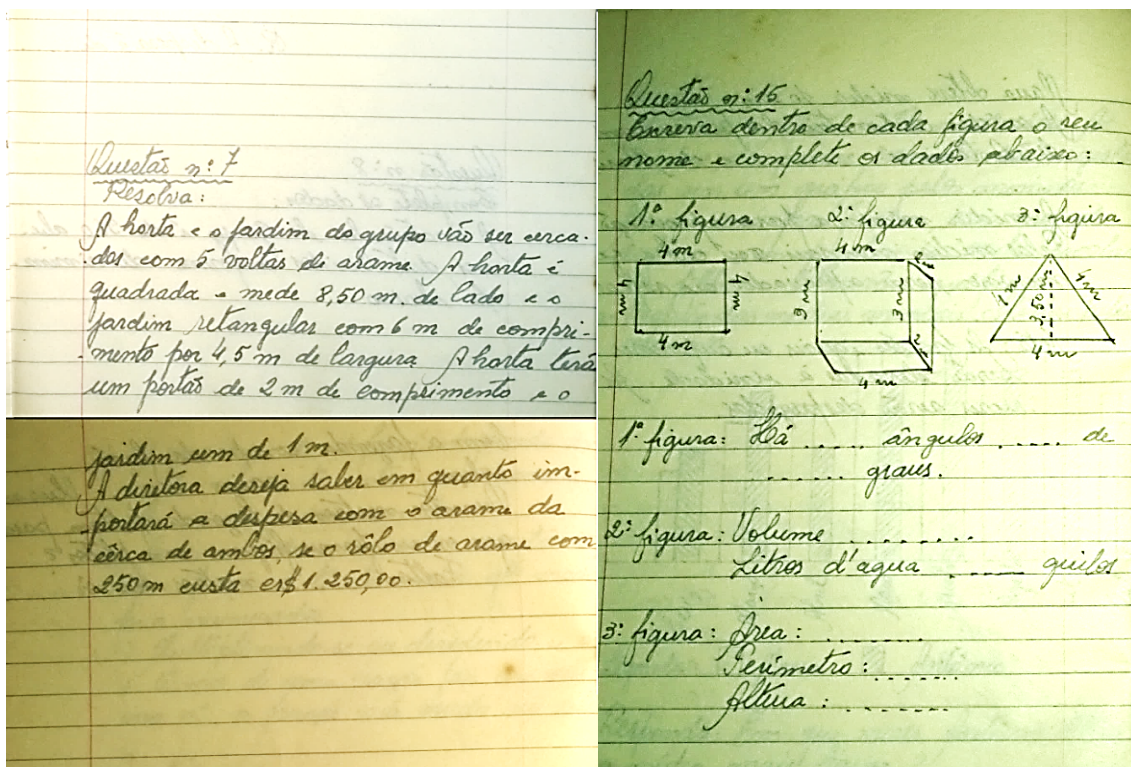 Questão n: 7
Resolva:
A horta e o jardim do grupo vão ser cerca-
dos com 5 voltas de arame. A horta é
quadrada e mede 8,50 m. de lado e o
jardim retangular com 6 m de compri-
mento por 4,5 m de largura. A horta terá
um portão de 2 m de comprimento e o
jardim um de 1 m.
A diretora deseja saber em quanto im-
portará a despesa com o arame da
cêrca de ambos, se o rôlo de arame com
250 m custa cr$ 1.250,00.
Questão n: 15
Escreva dentro de cada figura o seu
nome e complete os dados abaixo:
1ª figura 2ª figura 3ª figura
4 m
4 m
4 m
4 m
4 m
3 m
3 m
2
2
4 m
4 m
4 m
3,50 m
4 m
1ª figura: Há ..... ângulos ..... de
...... graus.
2ª figura: Volume ........
Litros d'agua ...... quilos
3ª figura: Área: ........
Perímetro: ......
Altura: ........